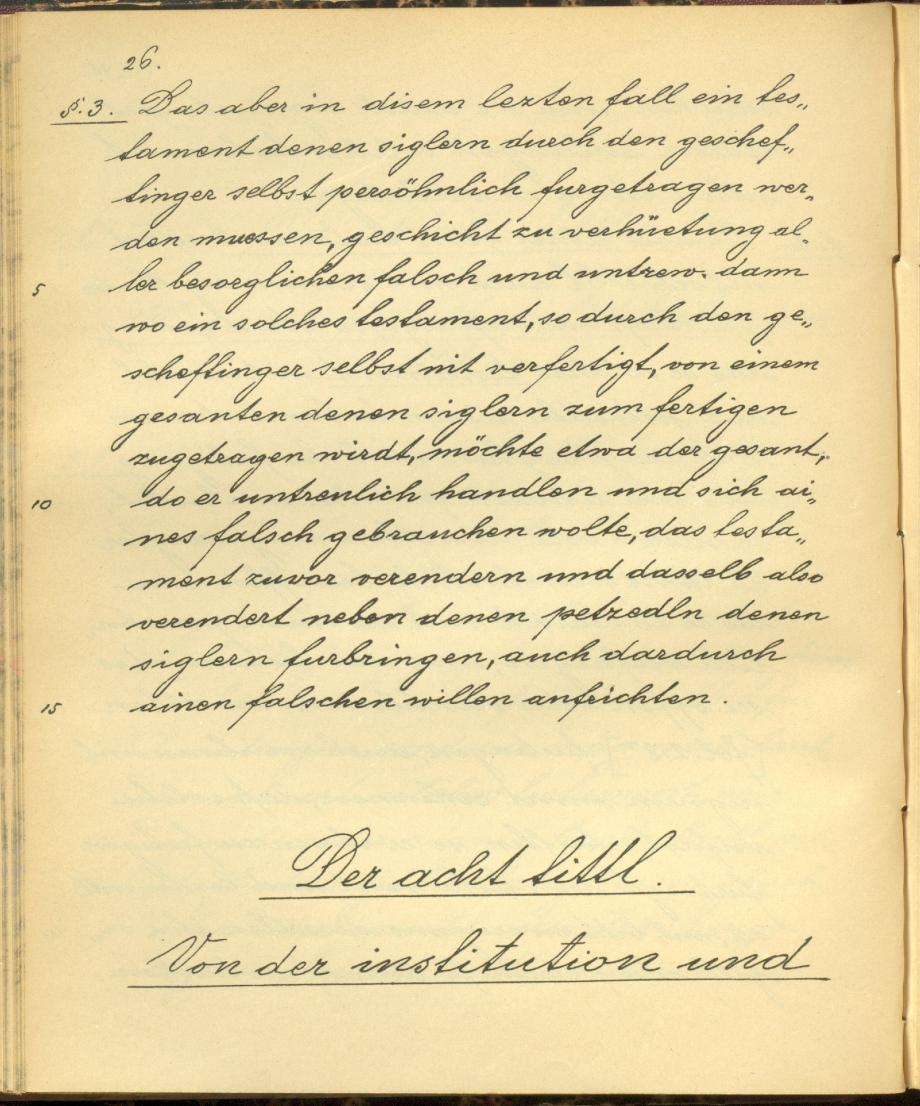 26.
§.3. Das aber in disem lezten fall ein tes„
tament denen siglern durch den geschef„
tinger selbst persöhnlich furgetragen wer„
den muessen, geschicht zu verhüetung al„
5 ler besorglichen falsch und untrew. dann
wo ein solches testament, so durch den ge„
scheftinger selbst nit verfertigt, von einem
gesanten denen siglern zum fertigen
zugetragen wirdt, möchte etwa der gesant,
10 do er untreulich handlen und sich ai„
nes falsch gebrauchen wolte, das testa„
ment zuvor verendern und dasselb also
verendert neben denen petzedln denen
siglern furbringen, auch dardurch
15 ainen falschen willen aufrichten.
Der acht tittl.
Von der institution und